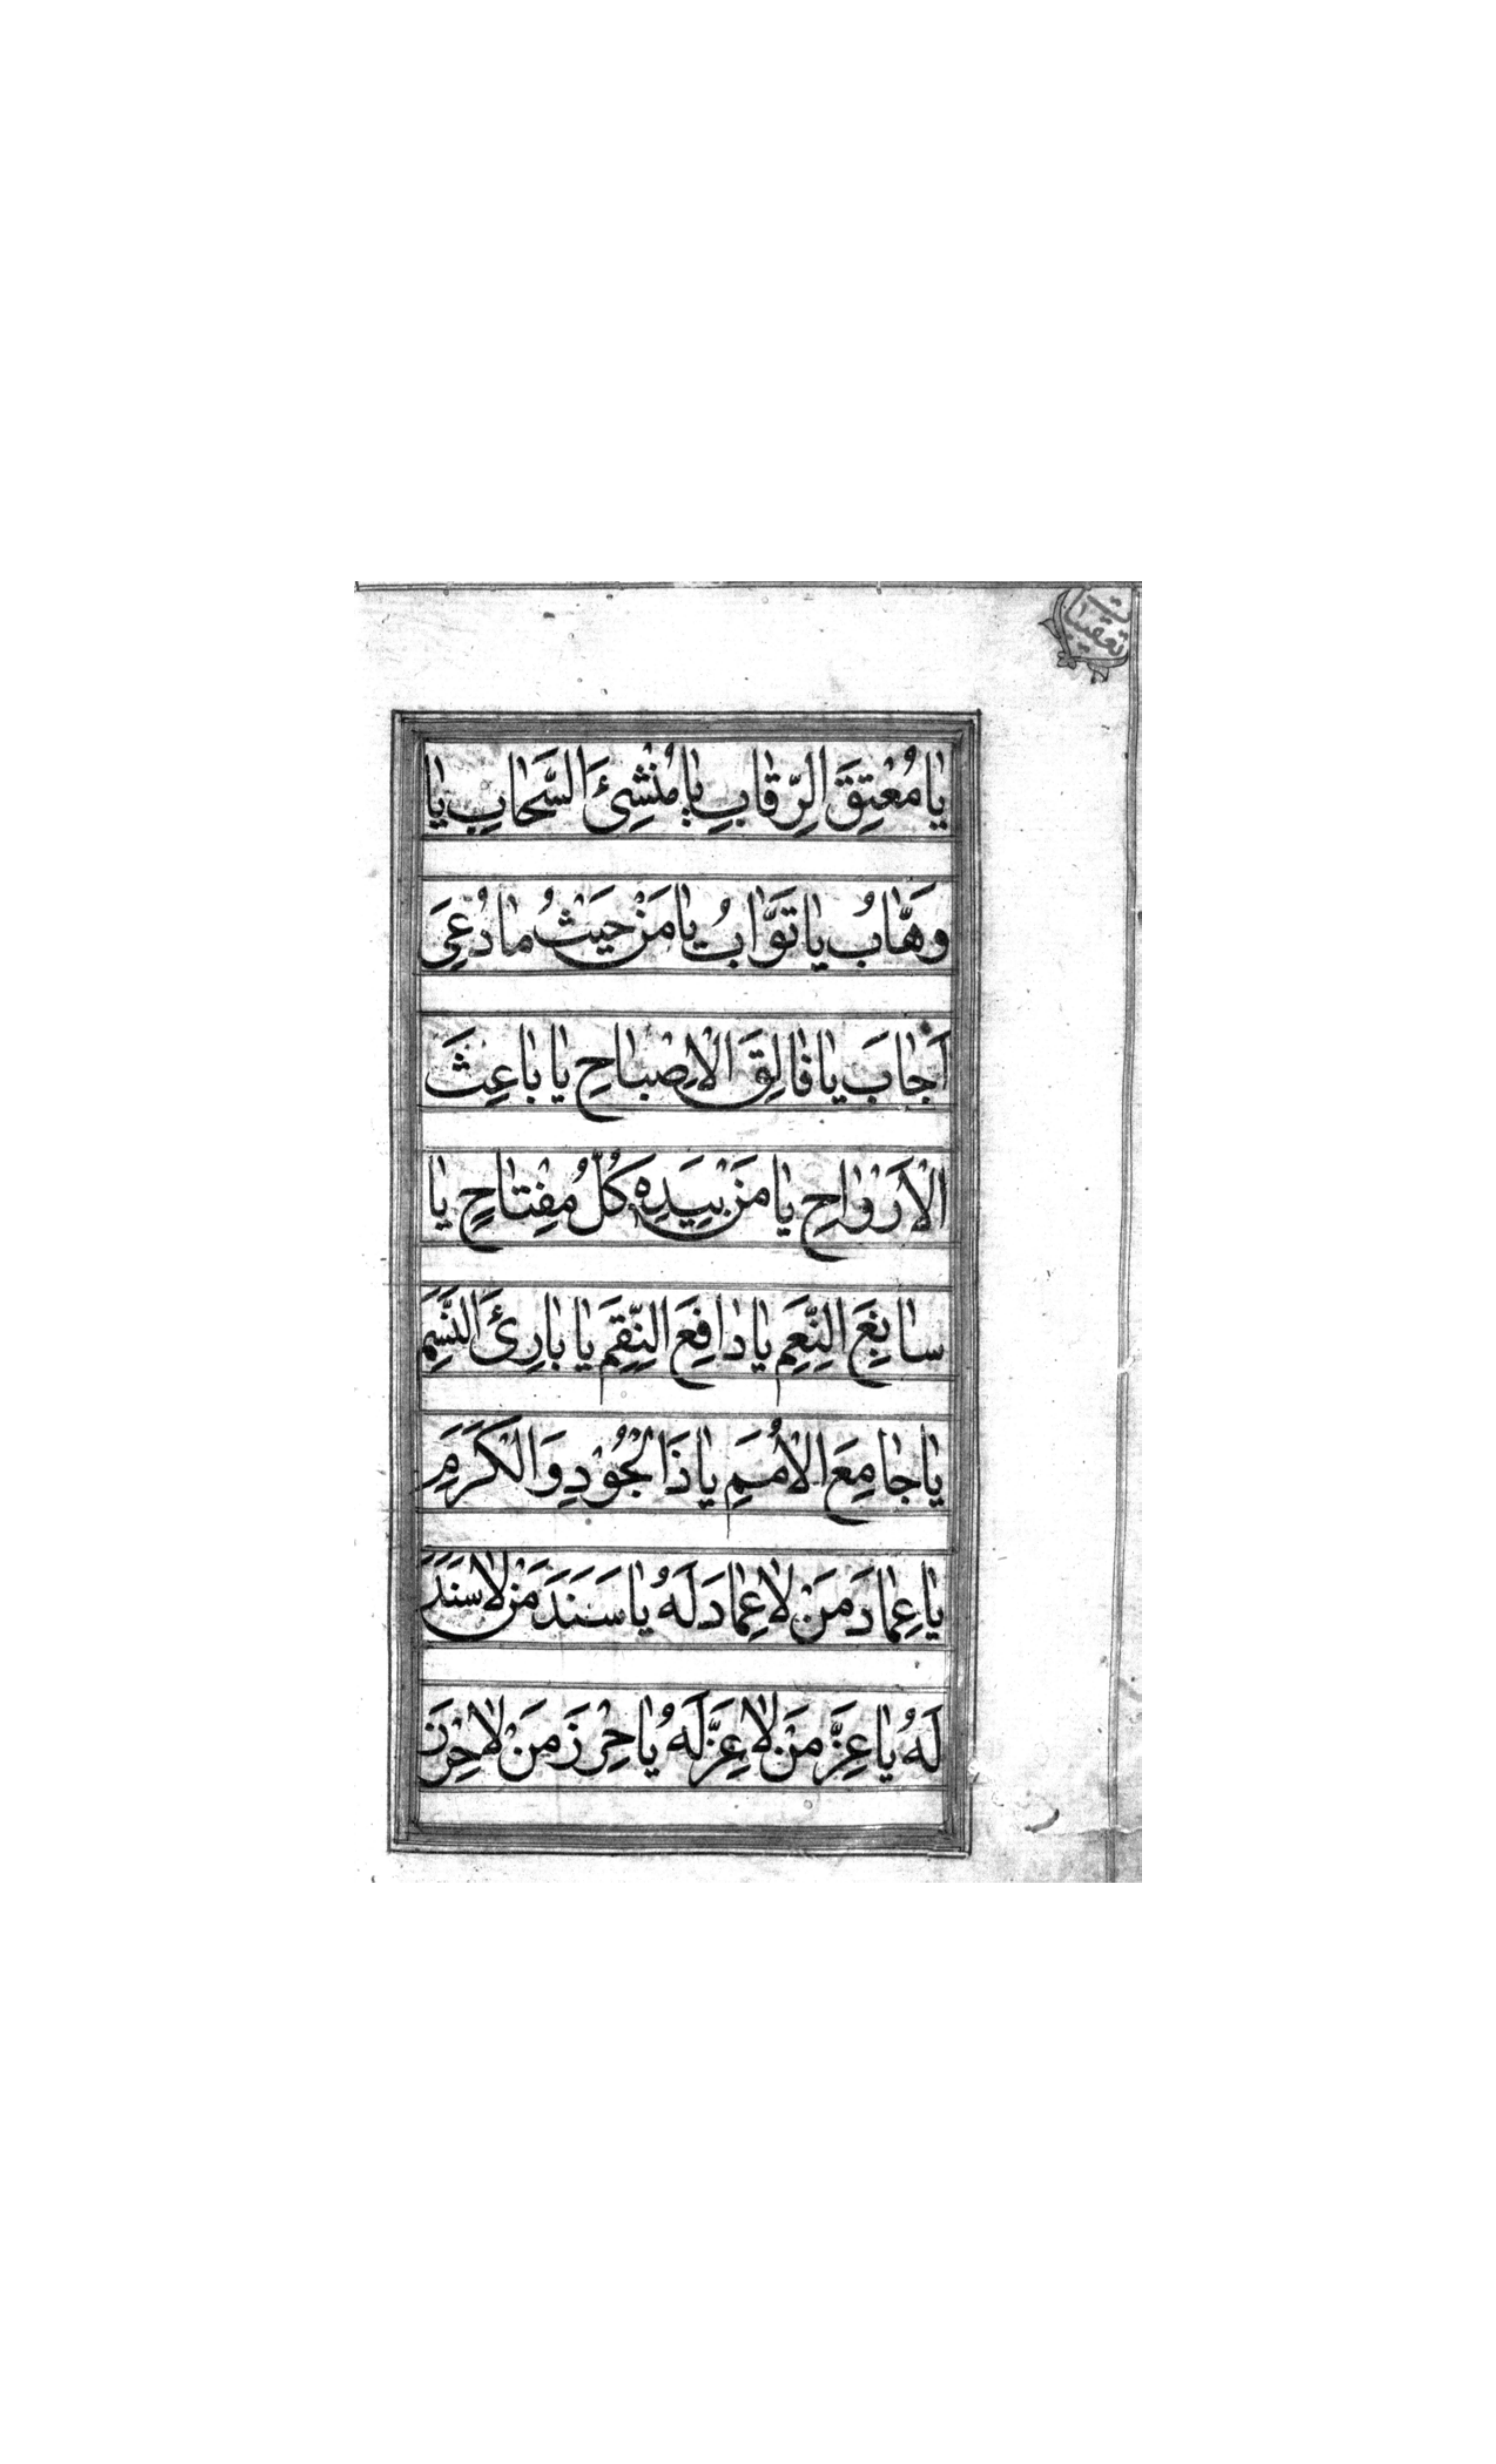 تعقیبات
یا مُعْتِقَ الرِّقابِ یا مُنْشِئَ السَّحابِ یا
وَهّابُ یا تَوّابُ یا مَنْ حَیْثُ ما دُعِیَ
اَجابَ یا فالِقَ الْاِصْباحِ یا باعِثَ
الْاَرْواحِ یا مَنْ بِیَدِهِ کُلُّ مِفْتاحٍ یا
سابِغَ النِّعَمِ یا دافِعَ النِّقَمِ یا بارِئَ النَّسَمِ
یا جامِعَ الْاُمَمِ یا ذَا الْجُوْدِ وَالْکَرَمِ
یا عِمادَ مَنْ لا عِمادَ لَهُ یا سَنَدَ مَنْ لا سَنَدَ
لَهُ یا عِزَّ مَنْ لا عِزَّ لَهُ یا حِرْزَ مَنْ لا حِرْزَ